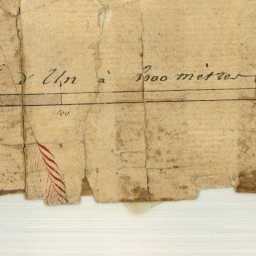 d'Un à 1000 mètres
100